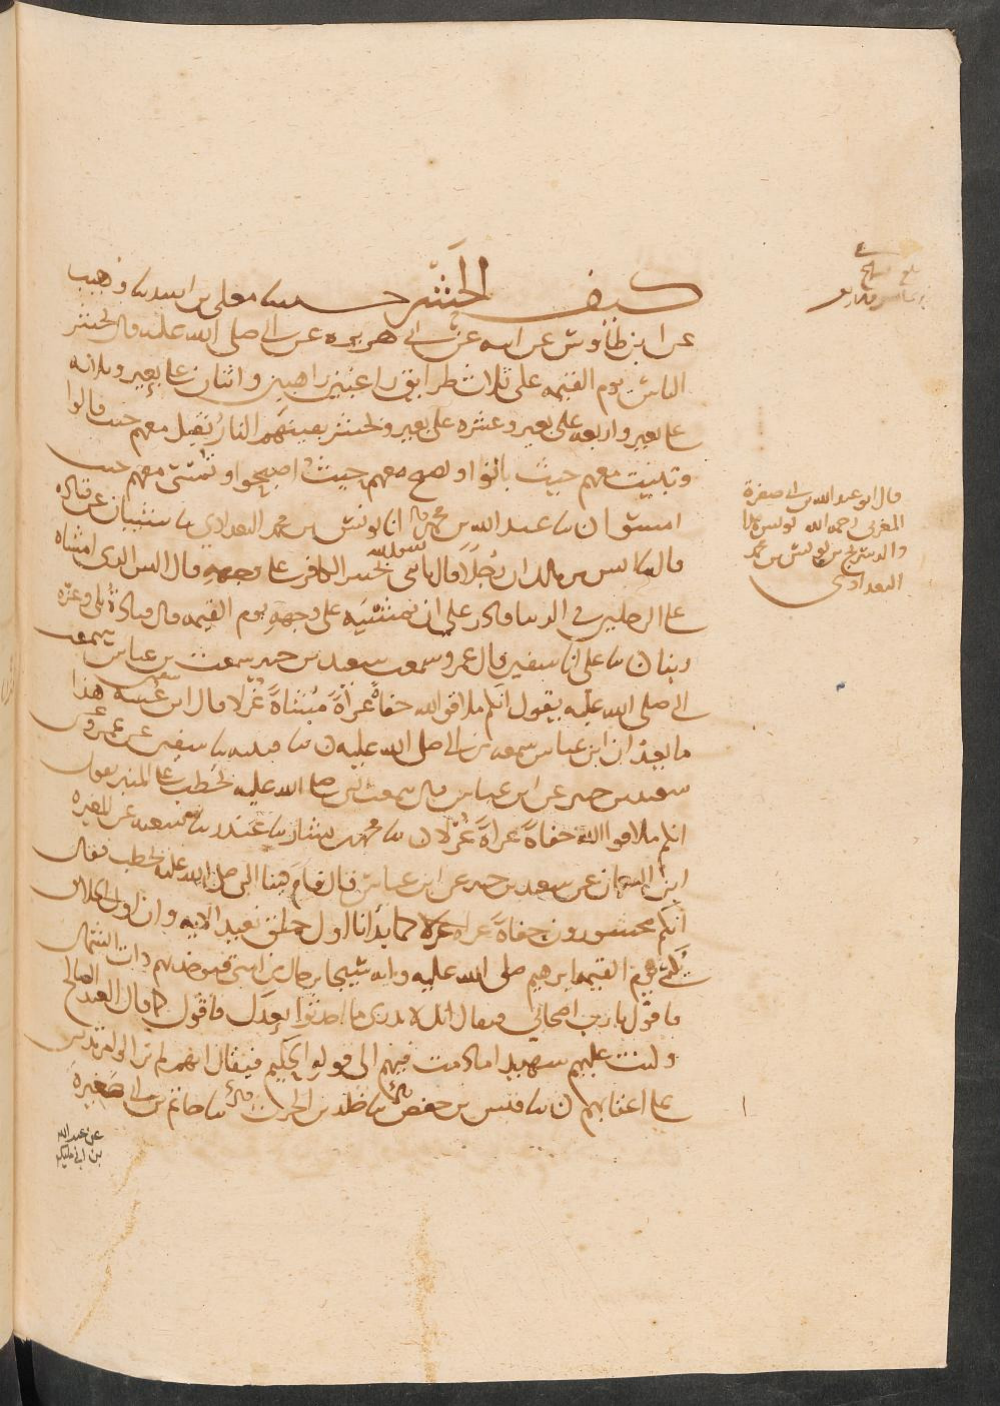 كيف الحشر حدثنا معلى بن اسد نا وهيب
عن ابن طاوس عن ابيه عن ابي هريره عن النبي صلى الله عليه قال يحشر
الناس يوم القيمه على ثلاث طرايق راغبين راهبين واثنان على بعير وثلاثه
على بعير واربعه على بعير وعشره على بعير ويحشر بقيتهم النار تقيل معهم حيث قالوا
وتبيت معهم حيث باتوا وتصبح معهم حيث اصبحوا وتمسي معهم حيث
امسوا ن نا عبد الله بن محمد انا يونس بن محمد البغدادي نا شيبان عن قتاده
قال نا انس بن مالك ان رجلا قال يا نبي الله يحشر الكافر على وجهه قال اليس الذي امشاه
على الرجلين في الدنيا قادر على ان يمشيه على وجهه يوم القيمه قال قتادة بلى وعزه
ربنا ن نا علي نا سفين قال عمرو سمعت سعيد بن جبير سمعت بن عباس سمعت
النبي صلى الله عليه يقول انكم ملاقوا الله حفاة عراة مشاة غرلا قال سفين هذا
ما يعد ان ابن عباس سمعه من النبي صلى الله عليه ن نا قتيبه نا سفين عن عمرو عن
سعيد بن جبير عن ابن عباس قال سمعت النبي صلى الله عليه يخطب على المنبر يقول
انكم ملاقوا الله حفاة عراة غرلا ن نا محمد بن بشار نا غندر نا شعبه عن المغيره
ابن النعمان عن سعيد بن جبير عن ابن عباس قال قام فينا النبي صلى الله عليه يخطب فقال
انكم محشورون حفاة عراه غرلا كما بدأنا اول خلق نعيده الايه وان اول الخلايق
يكسى يوم القيمه ابرهيم صلى الله عليه وانه سيجا برجال من امتي فيوخذ بهم ذات الشمال
فاقول يا رب اصحابي فيقال انك لا تدري ما احدثوا بعدك فاقول كما قال العبد الصالح
وكنت عليهم شهيدا ما دمت فيهم الى قوله الحكيم فيقال انهم لم يزالوا مرتدين
على اعقابهم ن نا قيس بن حفص نا خلد بن الحرث نا حاتم بن ابي صغيرة
عن عبد الله
بن ابي مليكه
قال ابو عبد الله بن ابي صفرة
المغربي رحمه الله يونس
والد
البغدادي